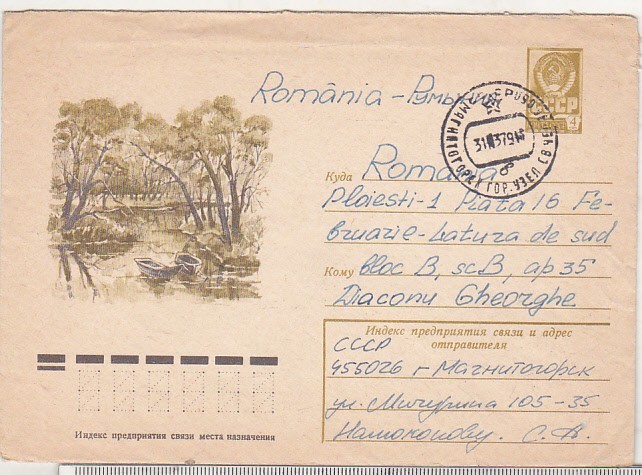 România - Румыния
СССР
4
МАГНИТОГОРСК ГОР. УЗЕЛ СВЯЗИ
31 379
Куда România
Ploiesti-1 Piata 16 Fe-
bruarie - Latura de sud
Кому bloc B, sc B, ap 35
Diaconu Gheorghe
Индекс предприятия связи и адрес
отправителя
СССР
455026 г Магнитогорск
ул. Мичурина 105-35
С. А.
Индекс предприятия связи места назначения